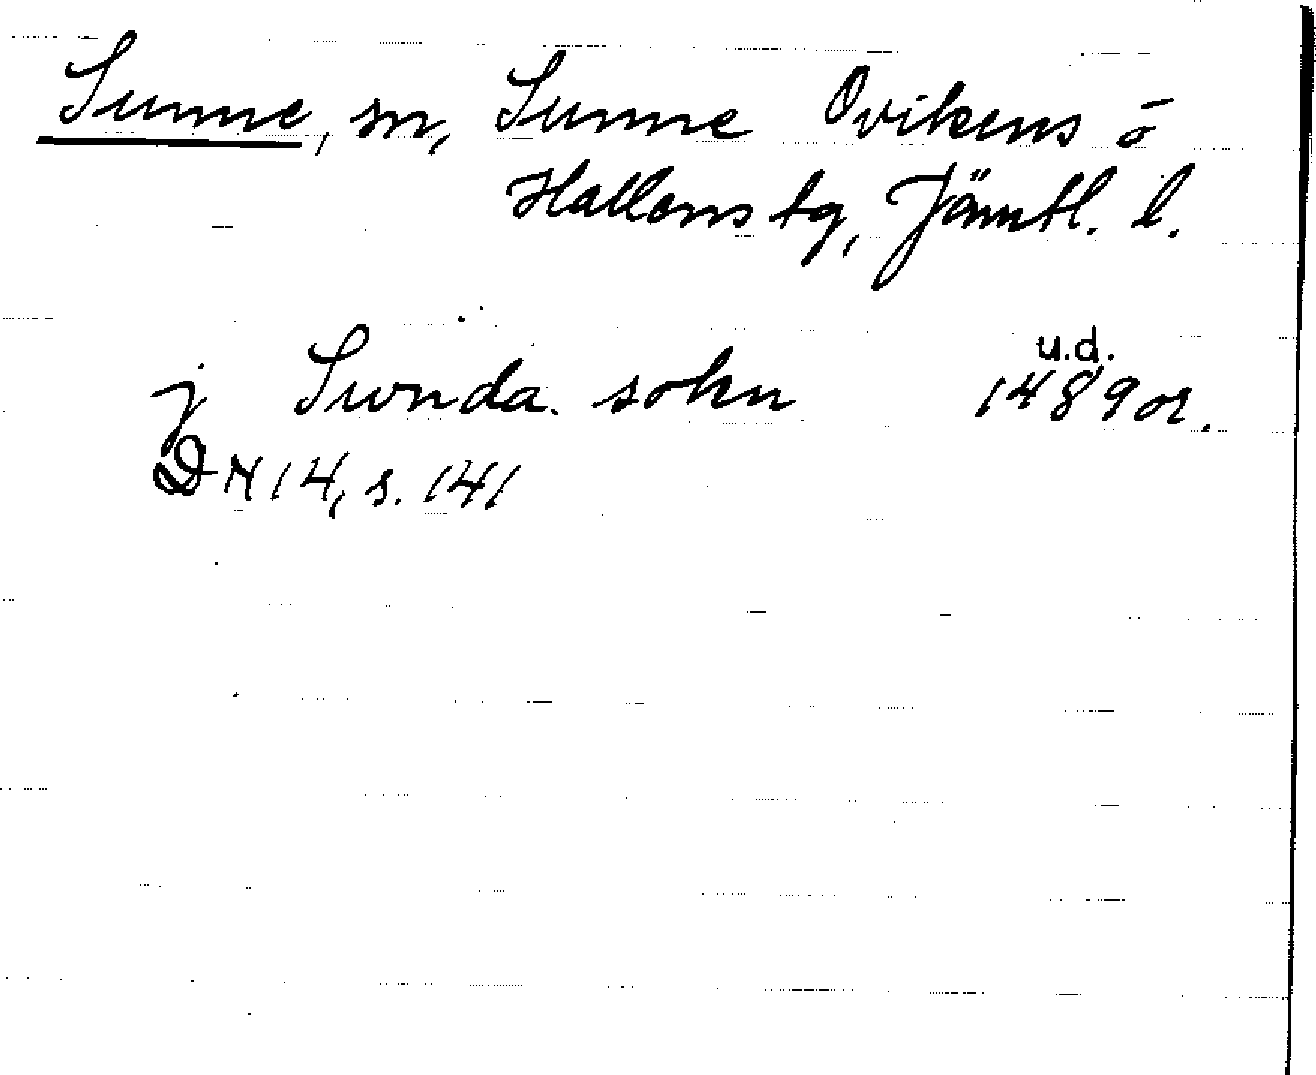 Sunne, sn, Sunne Ovikens o
Hallens tg, Jämtl. l.
u.d.
j Swnda sokn 1489 or.
DN 14, s. 141